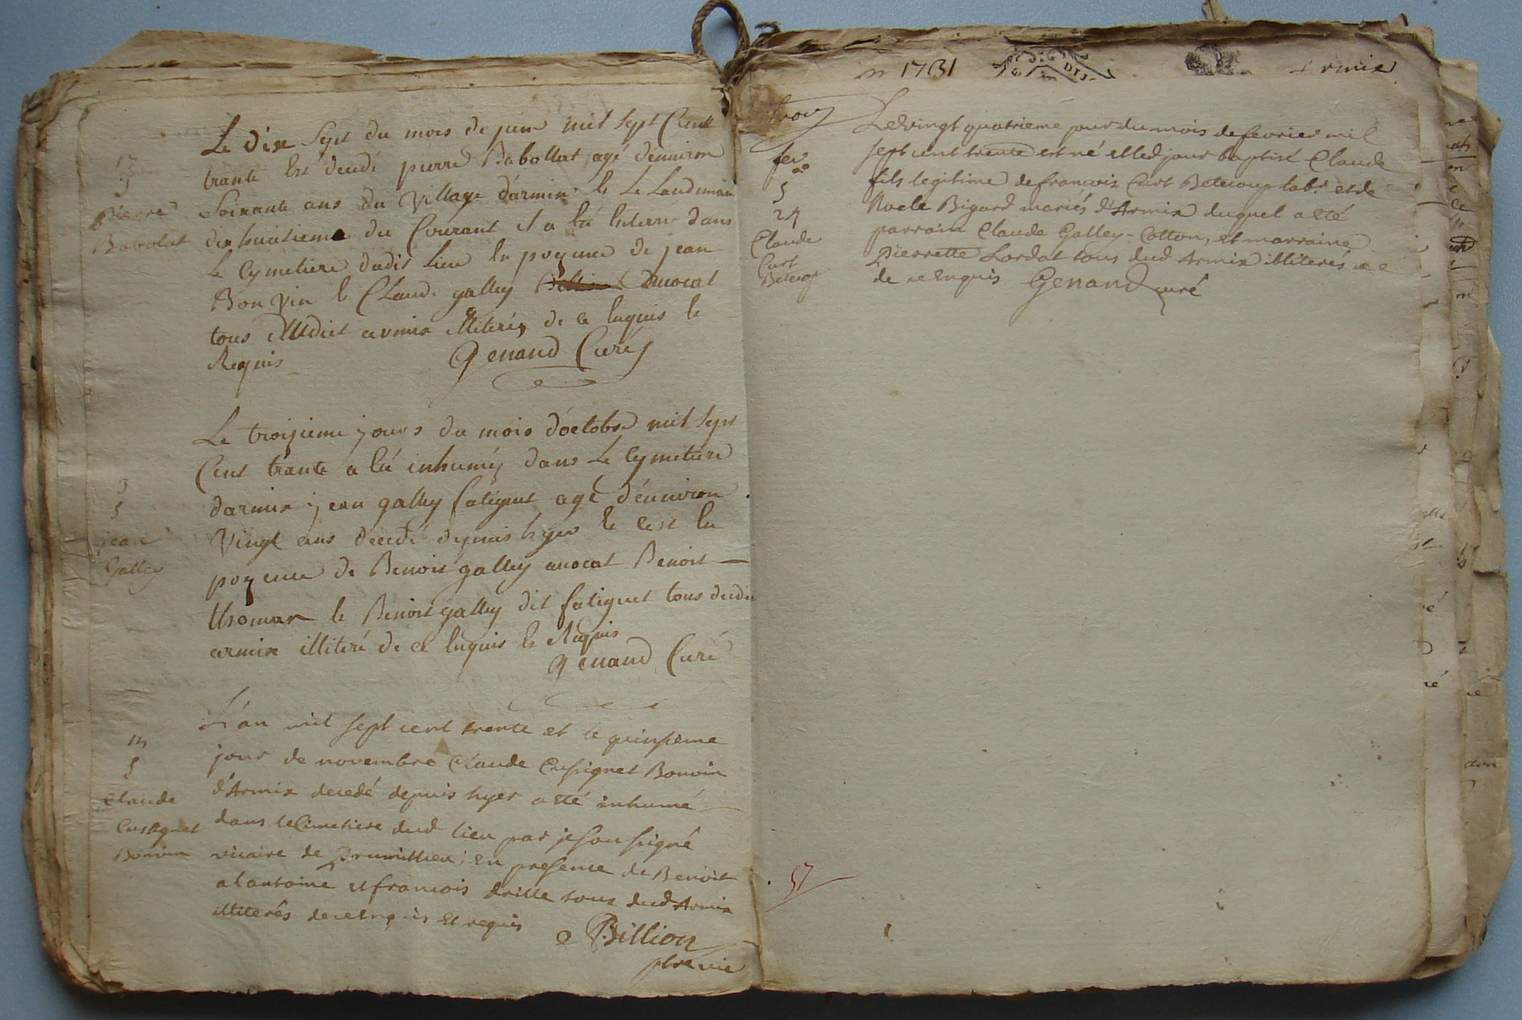 Le dix sept du mois de juin mil sept Cent
trante Est decedé pierre Babollat agé d'environ
Soixante ans du Village d'armix & Le Landemain
dix huitieme du Courant il a été Enterré dans
Le Cymetiere dudit Lieu En presence de jean
Bonvin & Claude galley avocat
tous dudit armix illiterés de ce Enquis &
Requis
Genand Curé
17
S
Pierre
Babolat
Le troizieme jours du mois d'octobre mil sept
Cent trante a été inhumé dans Le Cymetiere
darmix jean galley fatiguet agé d'environ
Vingt ans decedé depuis hyer & c'est En
presence de Benoit galley avocat Benoit
thomas & Benoit galley dit fatiguet tous dudit
armix illiteré de ce Enquis & Requis
Genand Curé
3
S
jean
Galley
L'an mil sept cent trente et le quinsieme
jour de novembre Claude Cusignet Bonvin
d'Armix decedé depuis hyer a été inhumé
dans le Cimetiere dud lieu par je sousigné
vicaire de Prumillieu; En presense de Benoit
alantoine et francois drille tous dud Armix
illiterés de ce Enquis Et requis
Billion
ptre vic
14
S
Claude
Cusignet
Bonvin
1731
DIJ
Le Vingt quatrieme jour du mois de fevrier mil
sept cent trente est né et led jour baptisé Claude
fils legitime de francois Curt Betecoup labr et de
Bigard mariés d'Armix duquel a été
parrain Claude Galley-Cotton, et marraine
Pierrette Lordat tous dud Armix illiterés
de ce Enquis Genand curé
fev
S
24
Claude
Curt
57